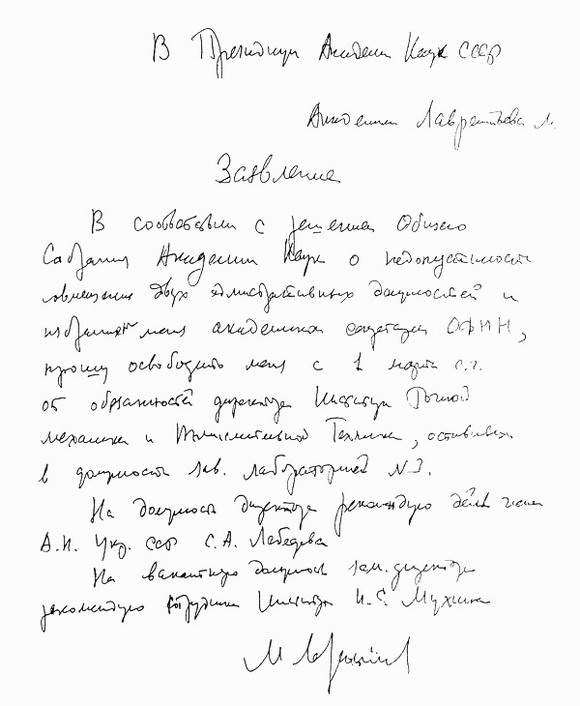 В Президиум Академии Наук СССР
Академика Лаврентьева М.
Заявление
В соответствии с решением Общего
Собрания Академии Наук о недопустимости
совмещения двух административных должностей и
избранием меня академиком секретарем ОФМН,
прошу освободить меня с 1 марта с.г.
от обязанностей директора Института Точной
механики и Вычислительной Техники, оставив
в должности зав. лабораторией N
На должность директора рекомендую действ члена
А.Н. Укр. ССР С.А. Лебедева
На вакантную должность зам. директора
рекомендую сотрудника Института И.С. Мухина
М Лаврентьев